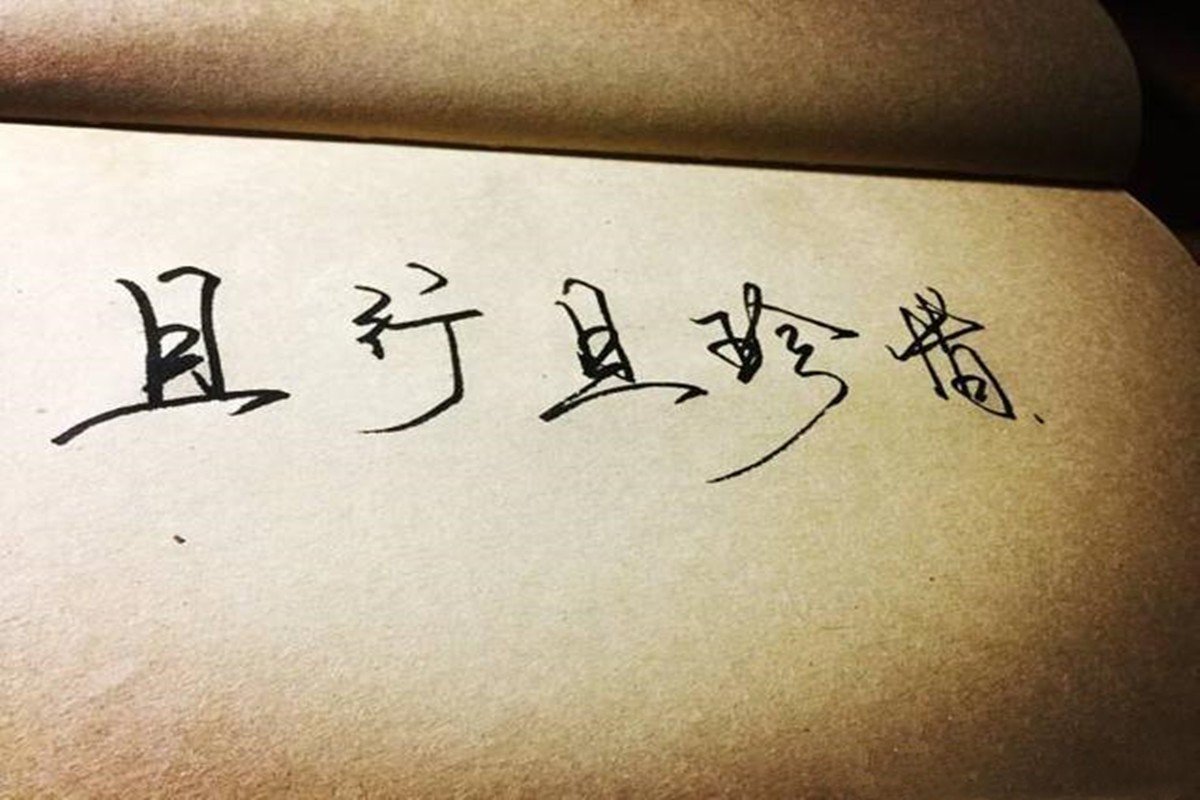 且行且珍惜、